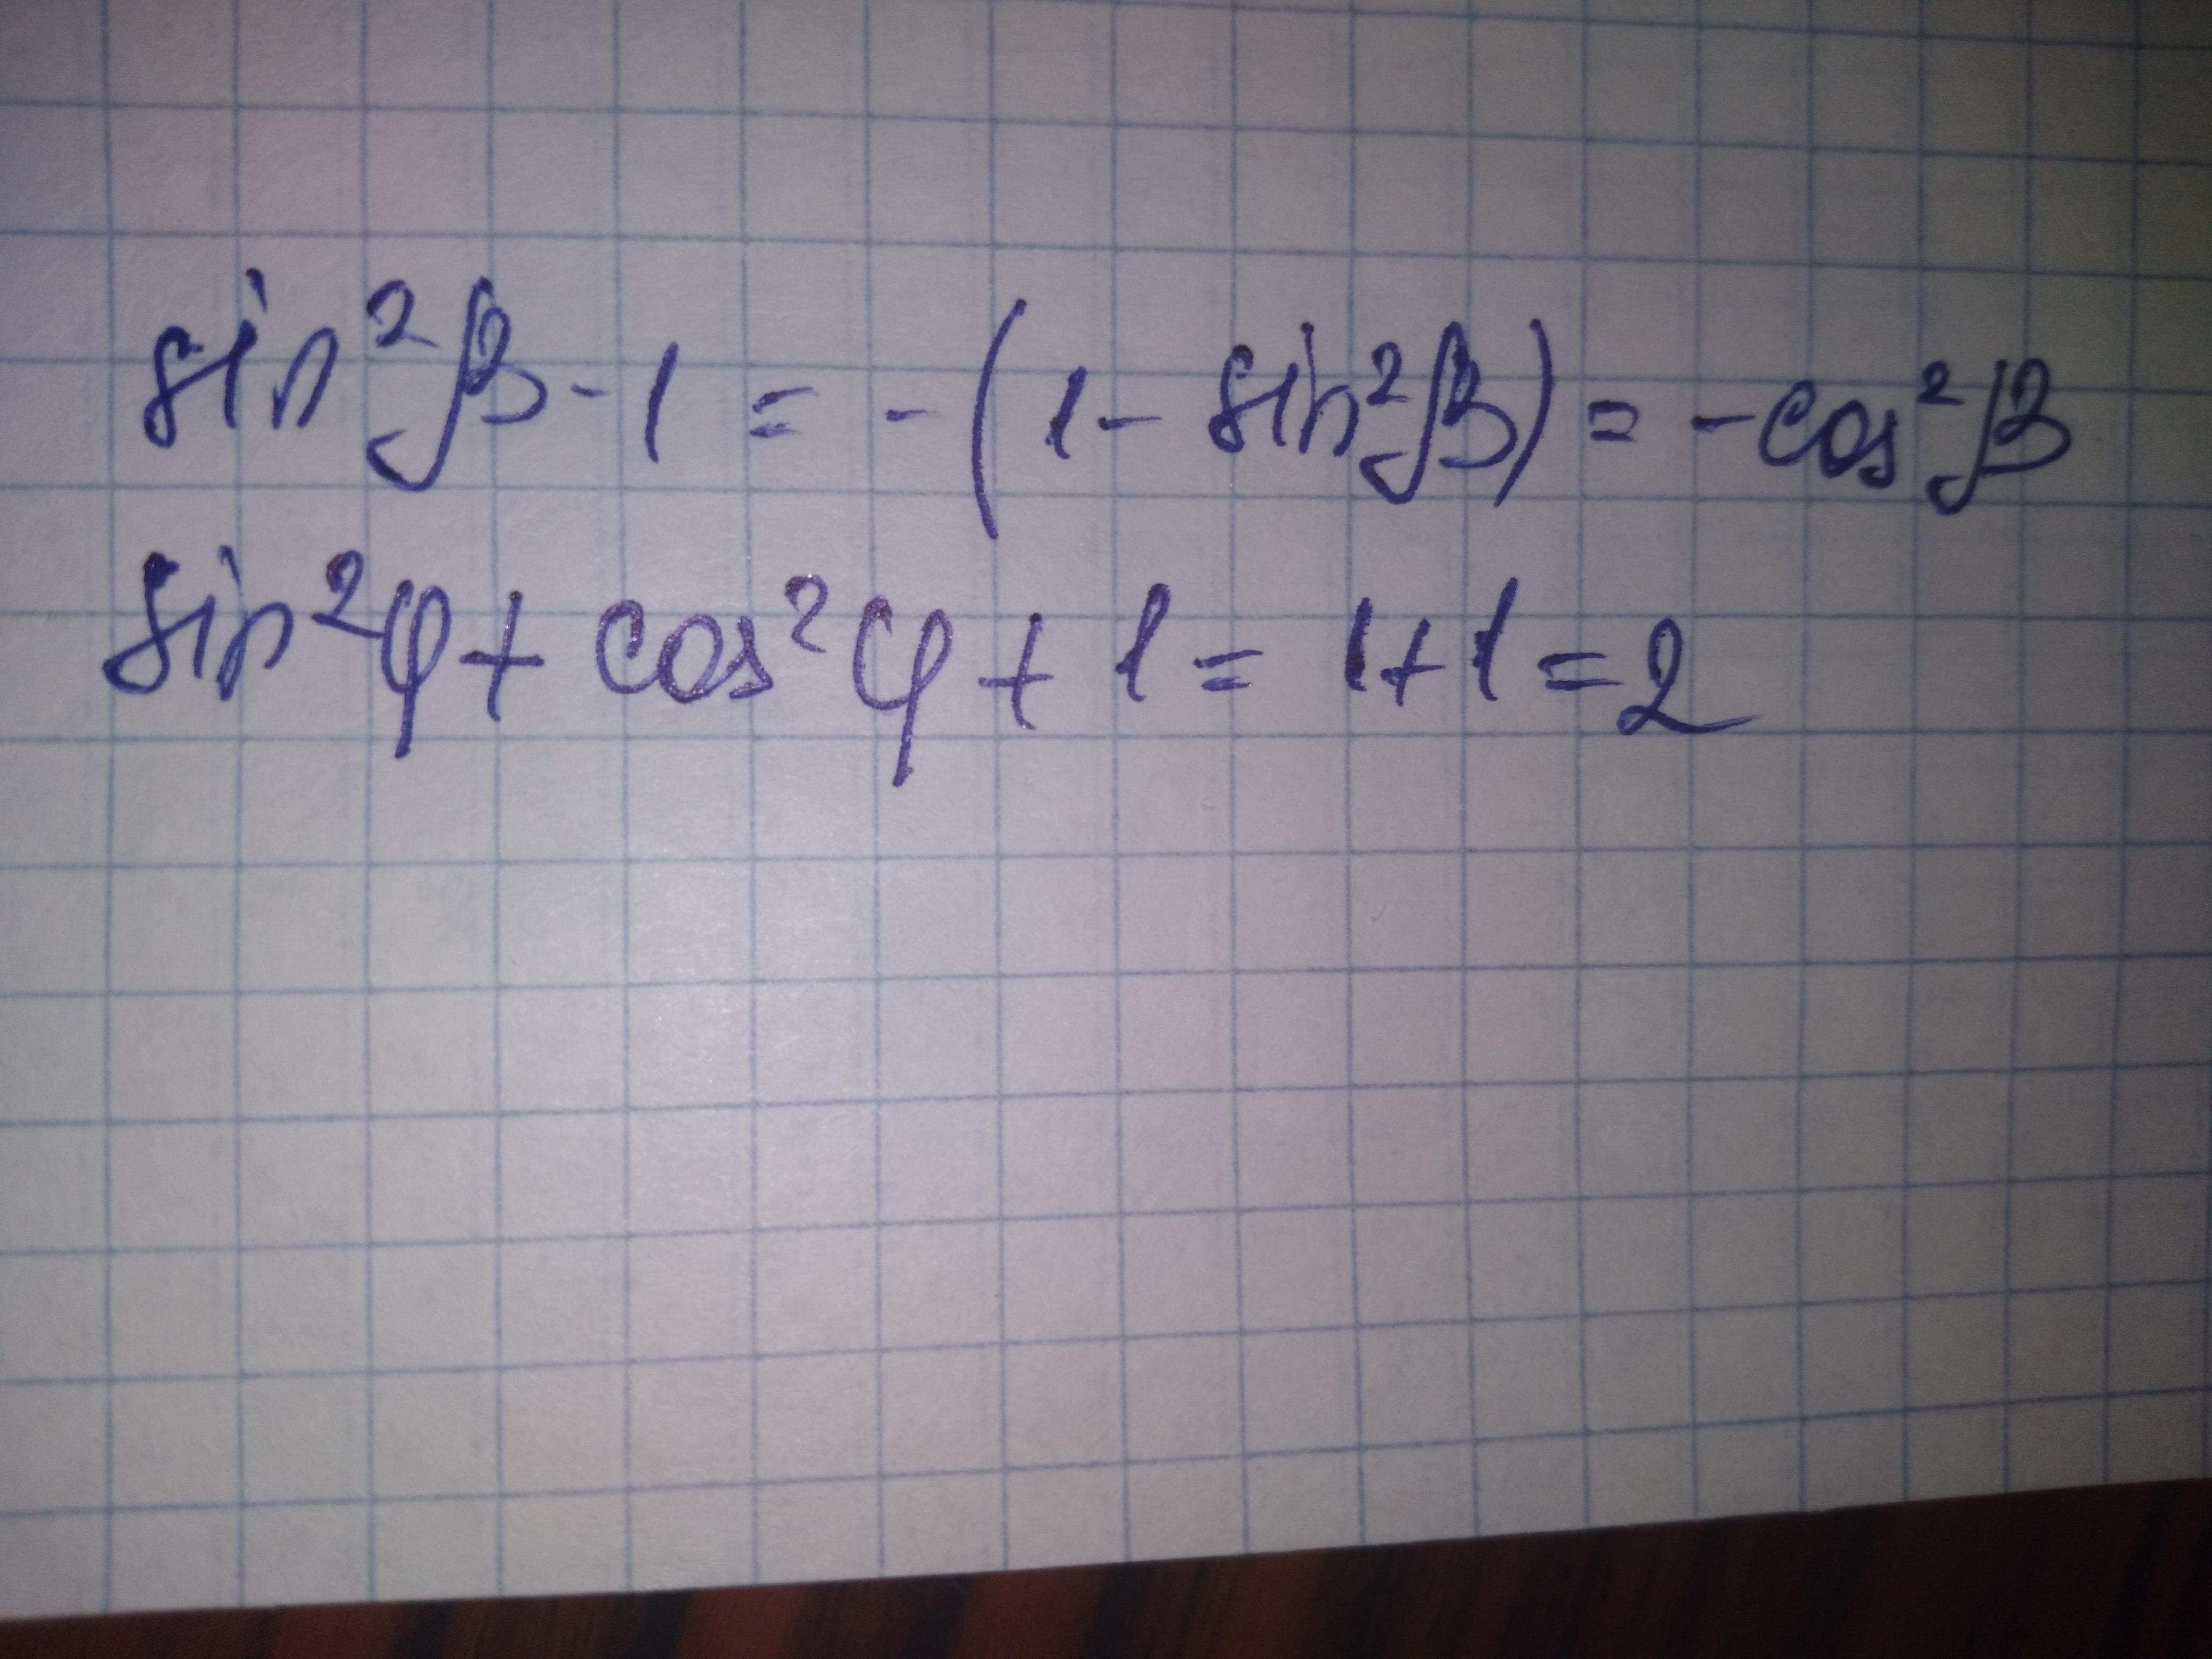 sin²β - 1 = - (1 - sin²β) = - cos²β
sin²φ + cos²φ + 1 = 1 + 1 = 2